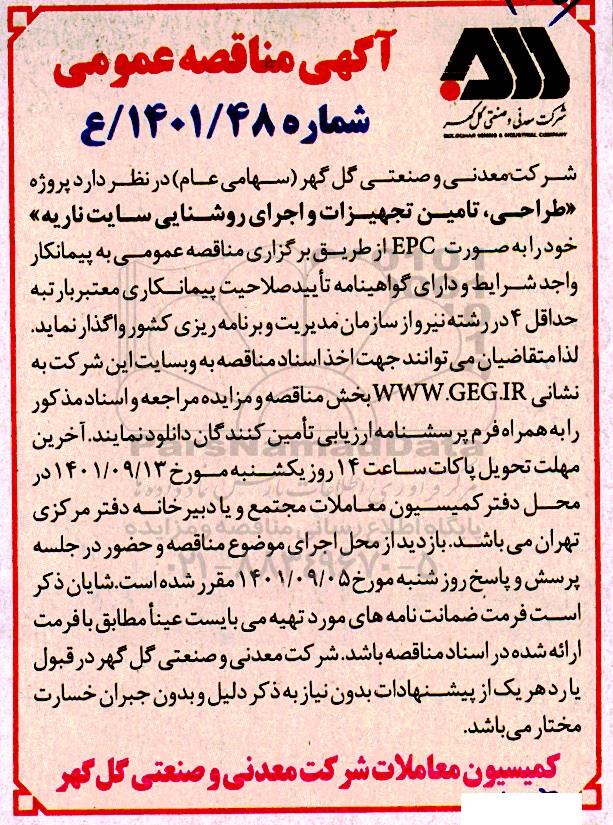 آگهی مناقصه عمومی
شماره ۱۴۰۱/۴۸/ع
شرکت معدنی و صنعتی گل گهر
GOLGOHAR MINING & INDUSTRIAL COMPANY
شرکت معدنی و صنعتی گل گهر (سهامی عام) در نظر دارد پروژه
«طراحی، تامین تجهیزات و اجرای روشنایی سایت ناریه»
خود را به صورت EPC از طریق برگزاری مناقصه عمومی به پیمانکار
واجد شرایط و دارای گواهینامه تأیید صلاحیت پیمانکاری معتبر با رتبه
حداقل ۴ در رشته نیرو از سازمان مدیریت و برنامه ریزی کشور واگذار نماید.
لذا متقاضیان می توانند جهت اخذ اسناد مناقصه به وبسایت این شرکت به
نشانی WWW.GEG.IR بخش مناقصه و مزایده مراجعه و اسناد مذکور
را به همراه فرم پرسشنامه ارزیابی تأمین کنندگان دانلود نمایند. آخرین
مهلت تحویل پاکات ساعت ۱۴ روز یکشنبه مورخ ۱۴۰۱/۰۹/۱۳ در
محل دفتر کمیسیون معاملات مجتمع و یا دبیرخانه دفتر مرکزی
تهران می باشد. بازدید از محل اجرای موضوع مناقصه و حضور در جلسه
پرسش و پاسخ روز شنبه مورخ ۱۴۰۱/۰۹/۰۵ مقرر شده است. شایان ذکر
است فرمت ضمانت نامه های مورد تهیه می بایست عیناً مطابق با فرمت
ارائه شده در اسناد مناقصه باشد. شرکت معدنی و صنعتی گل گهر در قبول
یا رد هر یک از پیشنهادات بدون نیاز به ذکر دلیل و بدون جبران خسارت
مختار می باشد.
کمیسیون معاملات شرکت معدنی و صنعتی گل گهر
ParsNamadData
پایگاه اطلاع رسانی مناقصه و مزایده
۰۲۱-۸۸۳۴۹۶۷۰-۵